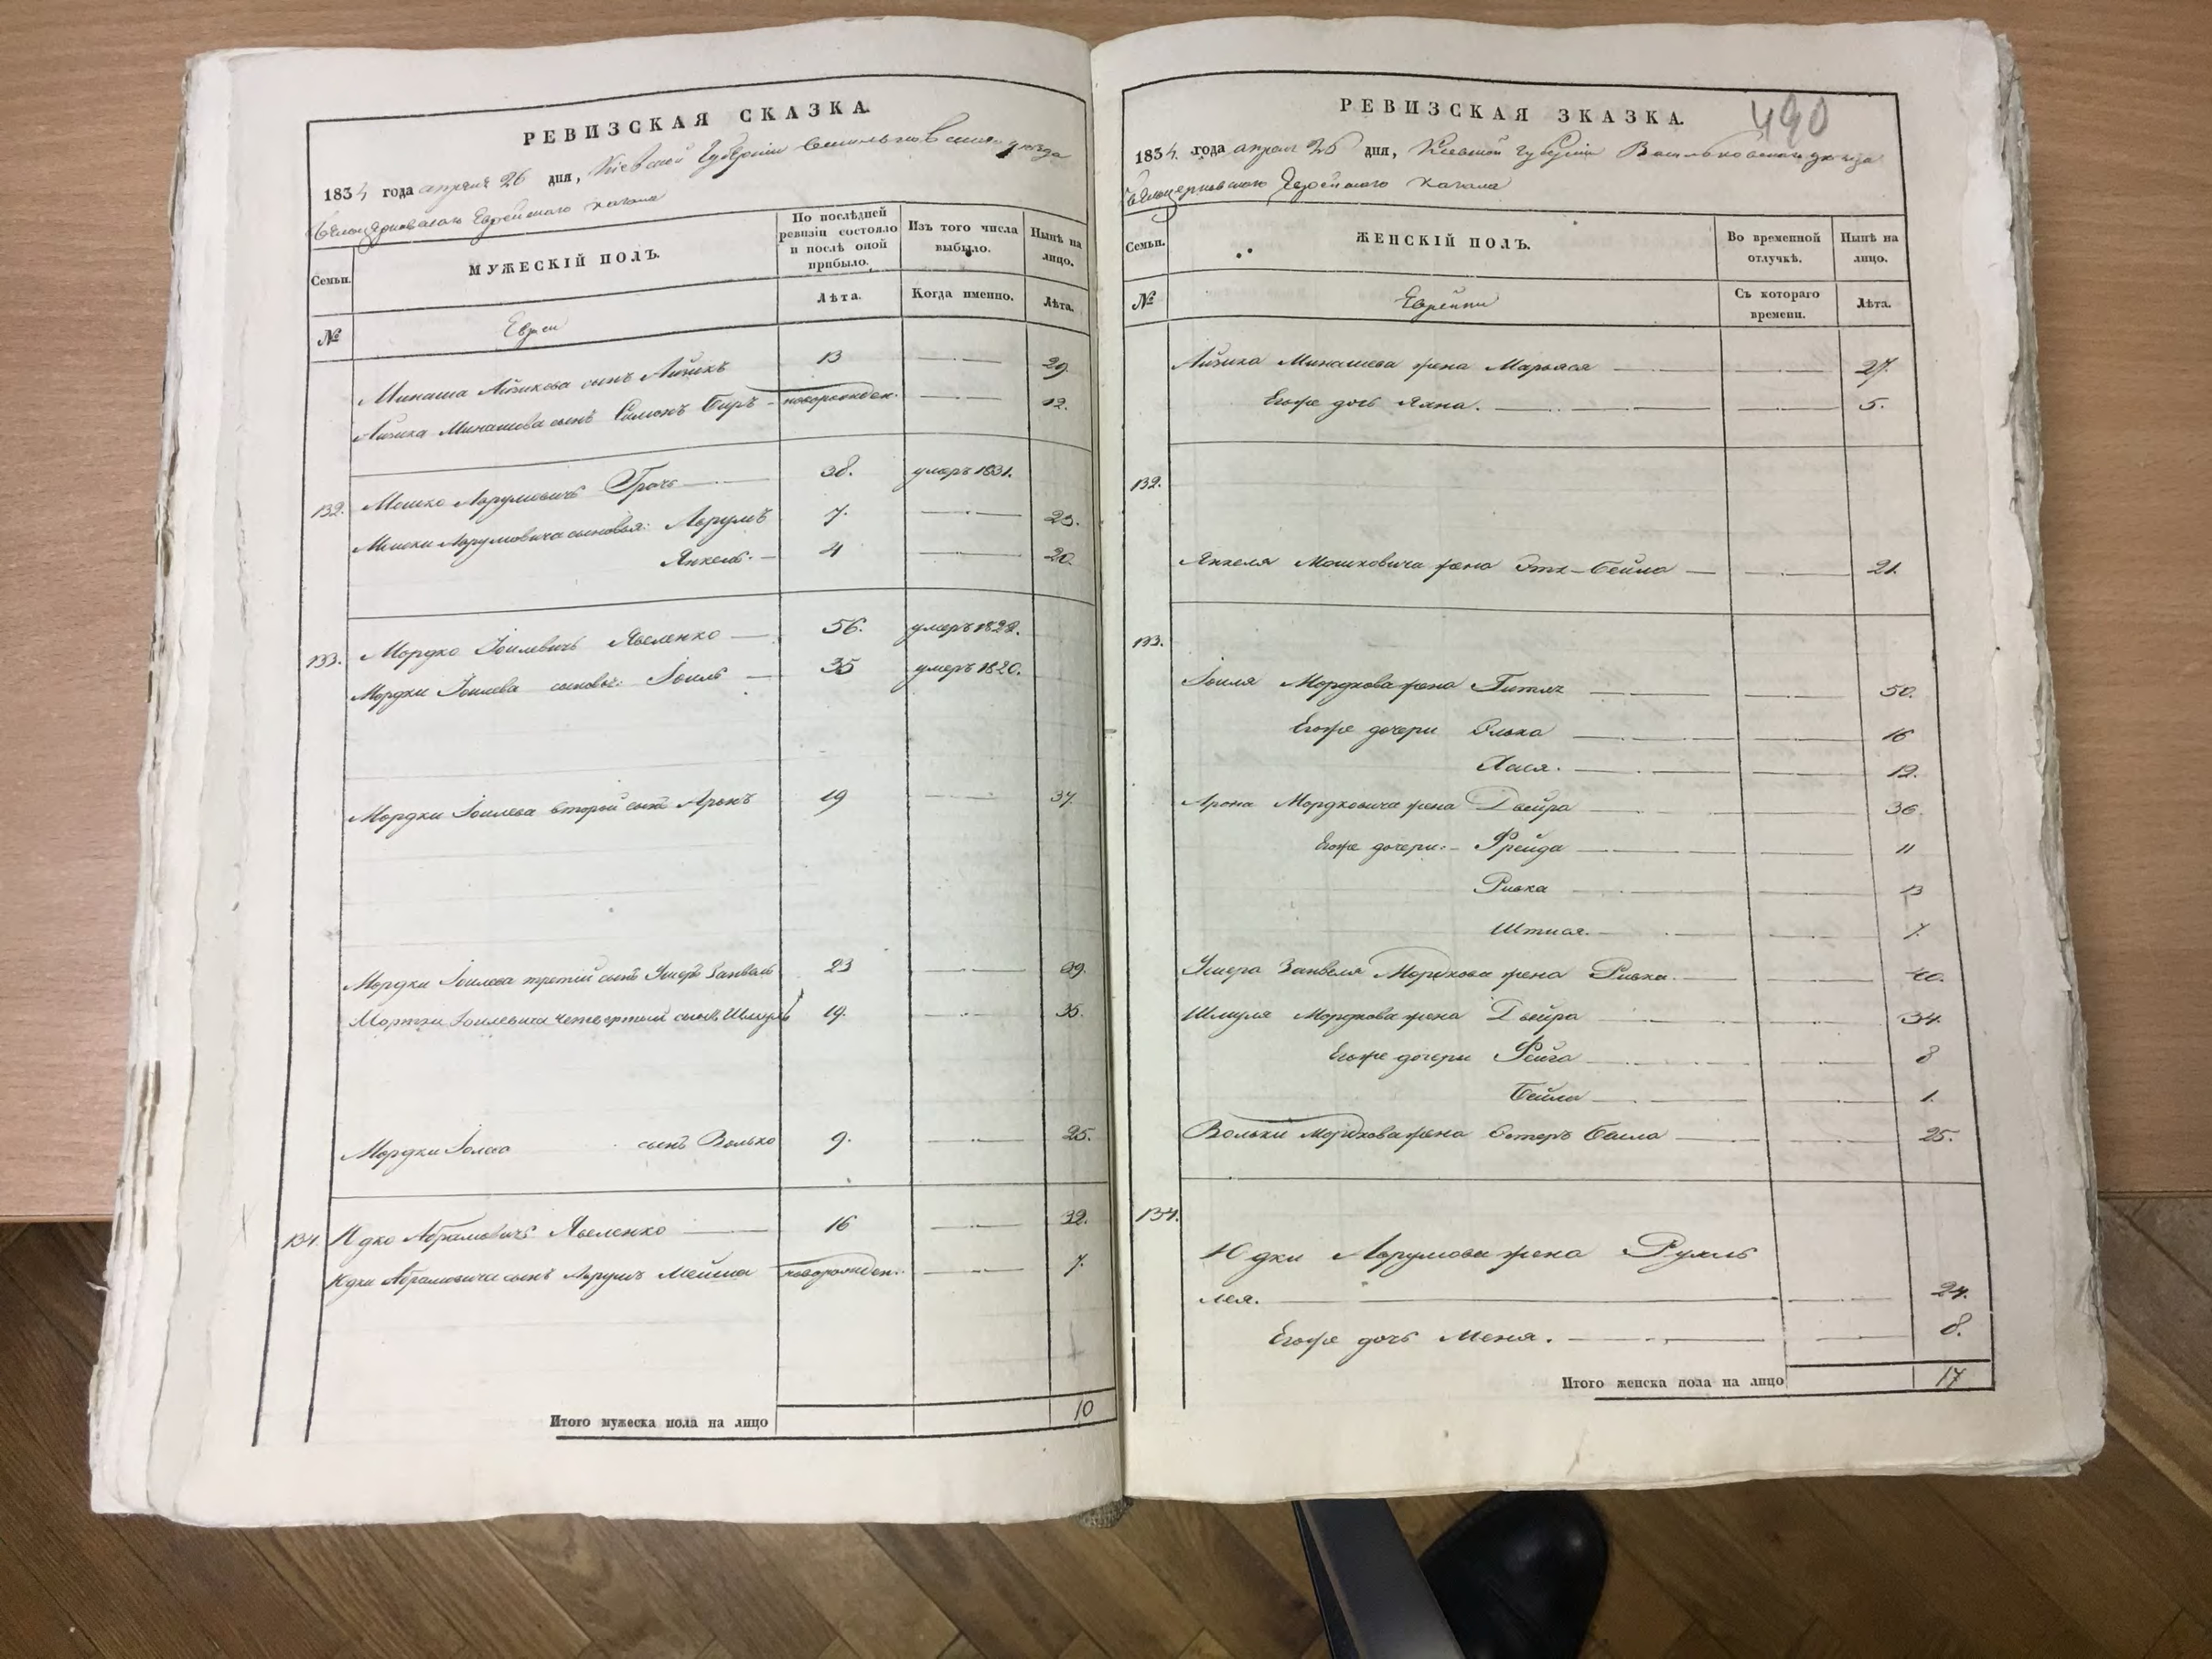 РЕВИЗСКАЯ СКАЗКА.
1834 года апреля 26 дня, Кіевской Губерніи Васильковскаго уезда
Белоцерковскаго Еврейскаго кагала
Семьи.
МУЖЕСКІЙ ПОЛЪ.
По послѣдней ревизіи состояло и послѣ оной прибыло.
Изъ того числа выбыло.
Нынѣ на лицо.
№
Евреи
Лѣта.
Когда именно.
Лѣта.
Минаша Айзикова сынъ Айзикъ 13 29.
Айзика Минашева сынъ Симонъ Беръ - новорожден. 12.
132. Мошко Аврумовичъ Грачъ 38. умеръ 1831.
Мошки Аврумовича сыновья: Аврумъ 7. 23.
Янкель. 4 20.
133. Мордко Іоилевичъ Явленко 56. умеръ 1828.
Мордки Іоилева сыновья: Іоиль 35 умеръ 1820.
Мордки Іоилева второй сынъ Аронъ 19 37
Мордки Іоилева третій сынъ Усеръ Занвель 23 39.
Мортки Іоилевича четвертый сынъ Шмуль 19. 35.
Мордки Іолева сынъ Волько 9. 25.
134. Юдко Абрамовичъ Явленко 16 32.
Юдки Абрамовича сынъ Аврумъ Мейша новорожден. 7.
Итого мужеска пола на лицо 10
490
РЕВИЗСКАЯ ЗКАЗКА.
1834. года апреля 26 дня, Киевской губерніи Васильковскаго уезда
Белоцерковскаго Еврейскаго кагала
Семьи.
ЖЕНСКІЙ ПОЛЪ.
Во временной отлучкѣ.
Нынѣ на лицо.
№
Еврейки
Съ котораго времени.
Лѣта.
Айзика Минашева жена Марьяся 27.
Егоже дочь Яхна. 5.
132.
Янкеля Мошковича жена Этя-Бейла 21.
133.
Іоиля Мордкова жена Гитля 50.
Егоже дочери Элька 16
Хася. 12.
Арона Мордковича жена Двейра 36.
Егоже дочери: Фрейда 11
Ривка 13
7.
Усера Занвеля Мордкова жена Ривка. 40.
Шмуля Мордкова жена Двейра 34.
Егоже дочери Фейга 8
Бейла 1.
Вольки Мордкова жена Естеръ Басла 25.
134.
Юдки Аврумова жена Рухль
Лея. 24.
Егоже дочь Меня. 8.
Итого женска пола на лицо 17